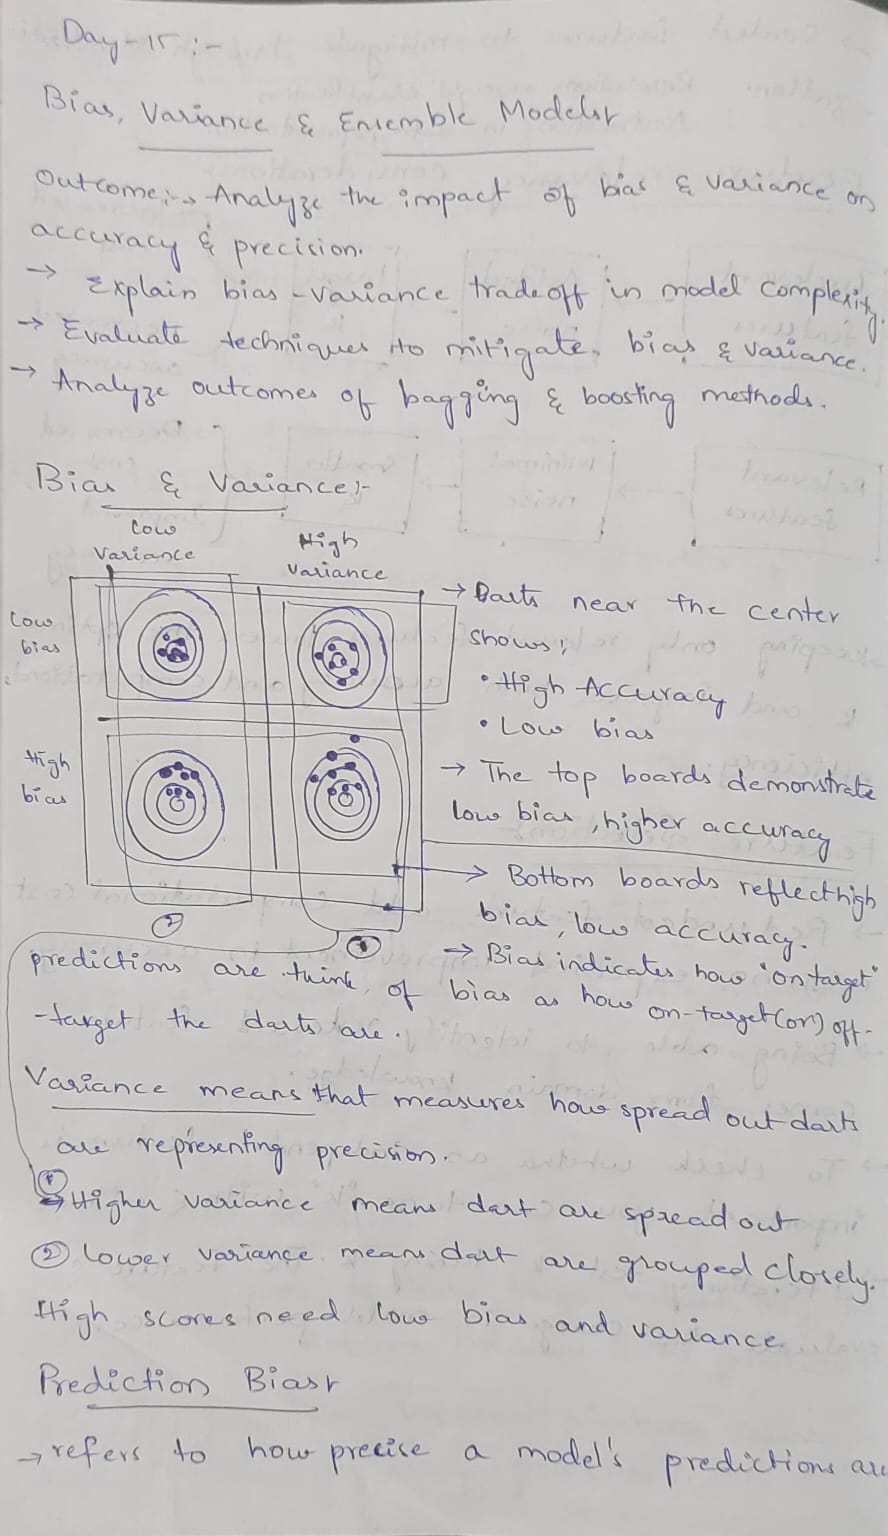 Day-15:-
Bias, Variance & Ensemble Models:-
Outcome:→ Analyze the impact of bias & variance on
accuracy & precision.
→ Explain bias-variance tradeoff in model complexity.
→ Evaluate techniques to mitigate bias & variance.
→ Analyze outcomes of bagging & boosting methods.
Bias & Variance:-
Low
Variance
High
Variance
Low
bias
High
bias
→ Darts near the center
shows;
• High Accuracy
• Low bias
→ The top boards demonstrate
low bias, higher accuracy
→ Bottom boards reflect high
bias, low accuracy.
② ①
→ Bias indicates how "on target"
predictions are think of bias as how on-target (or) off-
-target the darts are.
Variance means that measures how spread out darts
are representing precision.
① → Higher variance means dart are spread out
② lower variance means dart are grouped closely.
High scores need low bias and variance
Prediction Bias:-
→ refers to how precise a model's predictions are